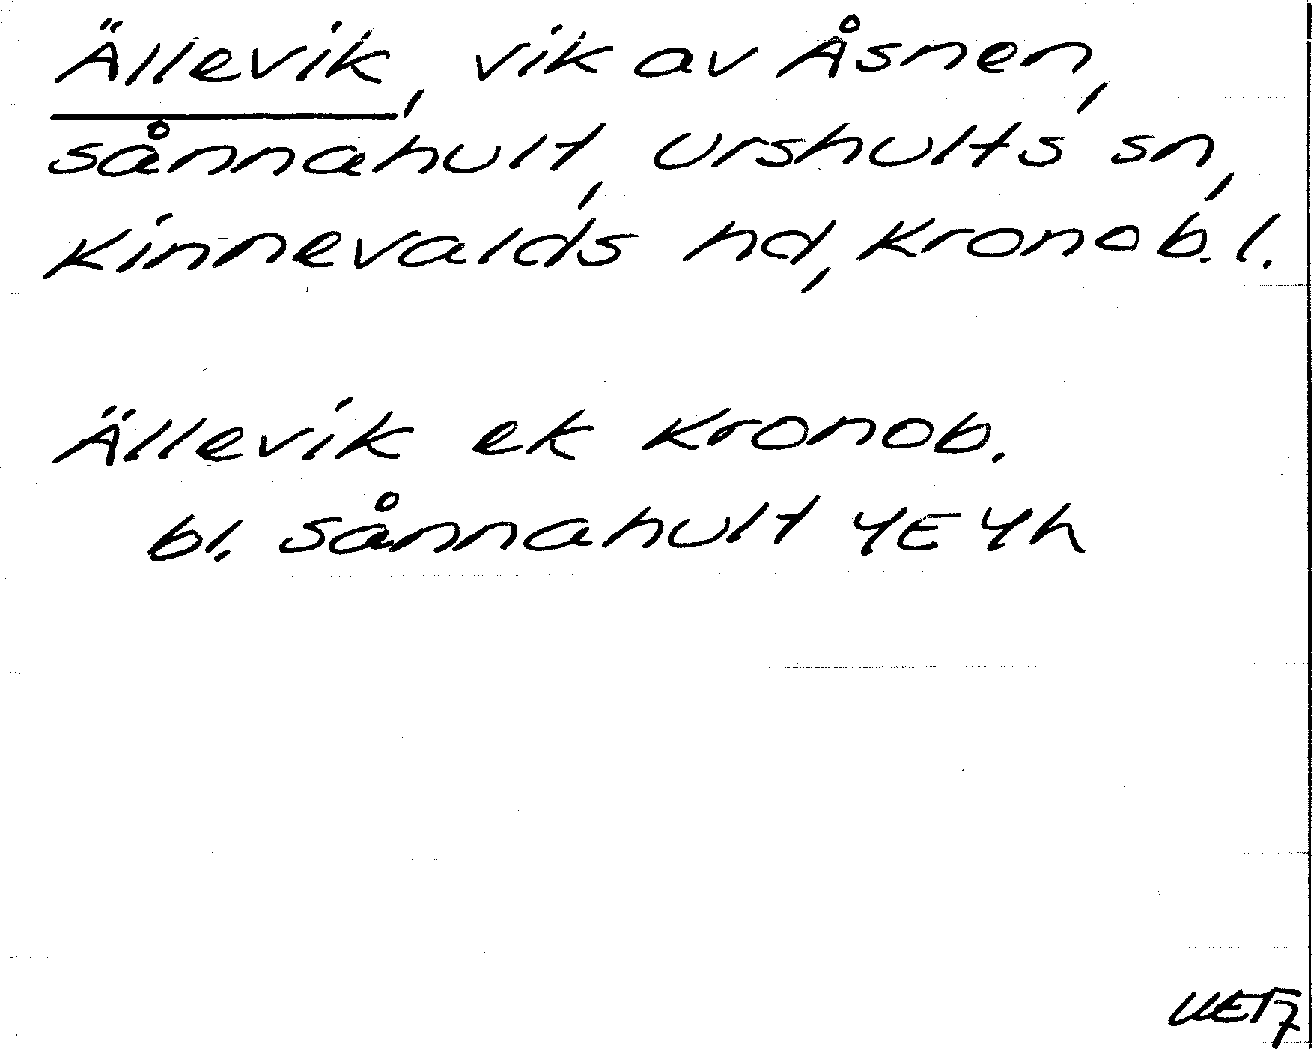 Ällevik, vik av Åsnen,
sånnahult, urshults sn,
Kinnevalds hd, Kronob. l.
Ällevik ek Kronob.
bl. Sånnahult 4E4h